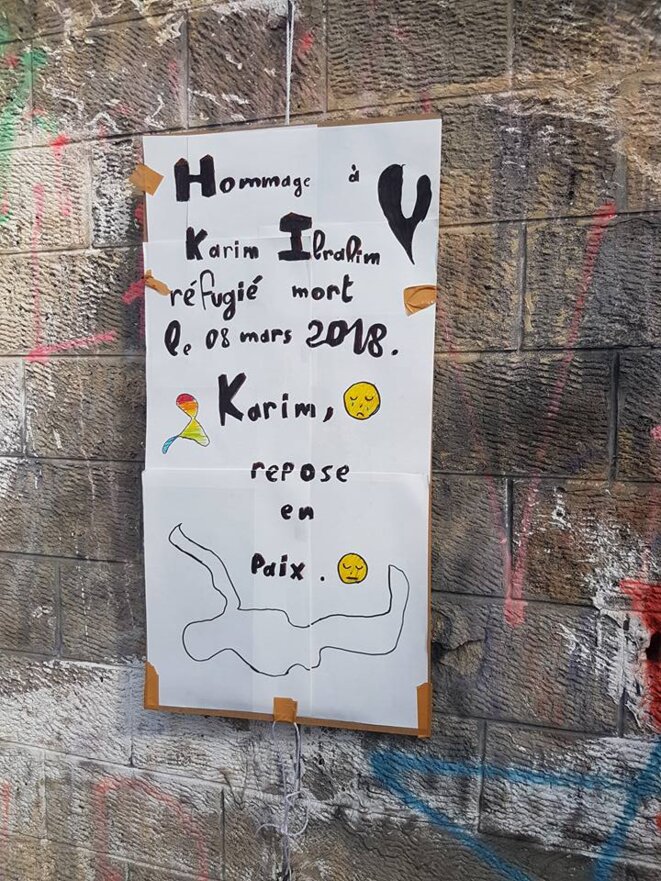 Hommage à
Karim Ibrahim
réfugié mort
le 08 mars 2018.
Karim,
repose
en
Paix.